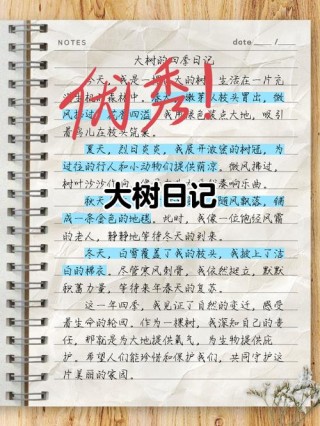 NOTES
date    /    /
大树的四季日记
今天,我是一
大的树,生活在一片充
森林中。
嫩芽从枝头冒出,微
风拂过,
花香四溢。
绿色
大地,吸引
鸟儿在枝头筑巢。
优秀!
夏天,烈日炎炎,我展开浓密的树冠,为
过往的行人和小动物们提供荫凉。微风拂过,
树叶沙沙作
奏响乐曲。
秋天
随风飘落,铺
大树日记
成一条金色的地毯。此时,我像一位饱经风霜
的老人,静静地等待冬天的到来。
冬天,白雪覆盖了我的枝头,我披上了洁
白的棉衣。尽管寒风刺骨,我依然挺立,默默
积蓄力量,等待来年春天的复苏。
这一年四季,我见证了自然的变迁,感受
着生命的轮回。作为一棵树,我深知自己的责
任,那就是为大地提供氧气,为生物提供庇
护。希望人们能珍惜和保护我们,共同守护这
片美丽的家园。